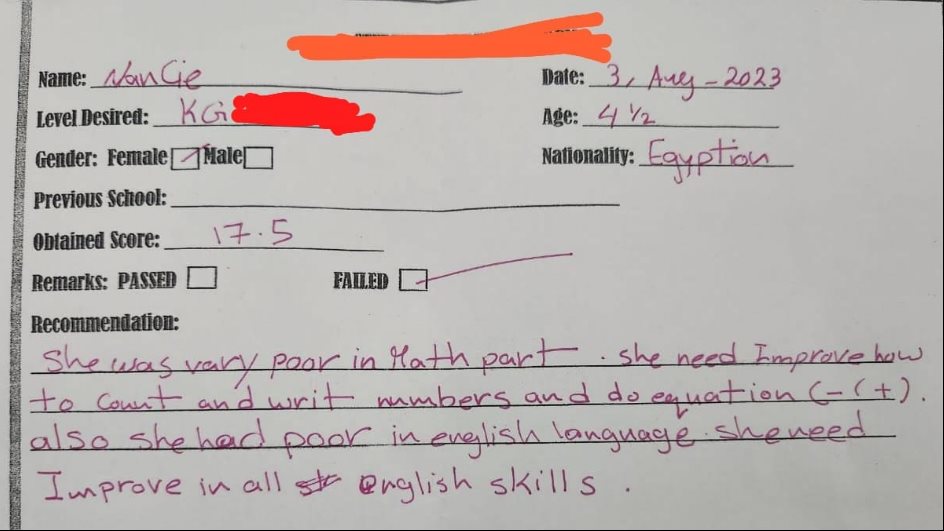 Name: NanCie Date: 3, Aug - 2023
Level Desired: KG Age: 4 1/2
Gender: Female Male Nationality: Egyption
Previous School:
Obtained Score: 17.5
Remarks: PASSED FAILED
Recommendation:
She was vary poor in Math part. she need Improve how
to count and writ numbers and do equation (- (+).
also she had poor in english language. she need
Improve in all english skills.